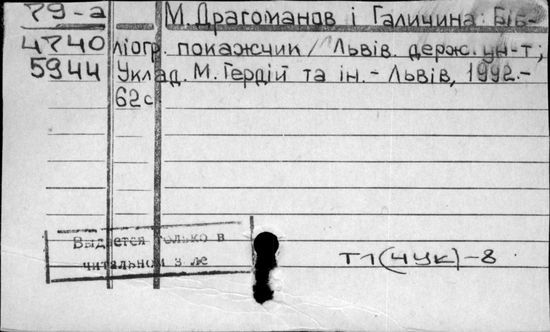 79-а М. Драгоманов і Галичина: Біб-
4740 ліогр. покажчик / Львів. держ. ун-т;
5944 Уклад. М. Гердій та ін. - Львів, 1992.-
62с
Выдается только в
читальном з ле
Т1(4УК)-8